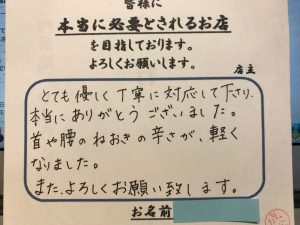 皆様に
本当に必要とされるお店
を目指しております。
よろしくお願いします。
店主
とても優しく丁寧に対応して下さり、
本当にありがとうございました。
首や腰のねおきの辛さが、軽く
なりました。
また、よろしくお願い致します。
お名前